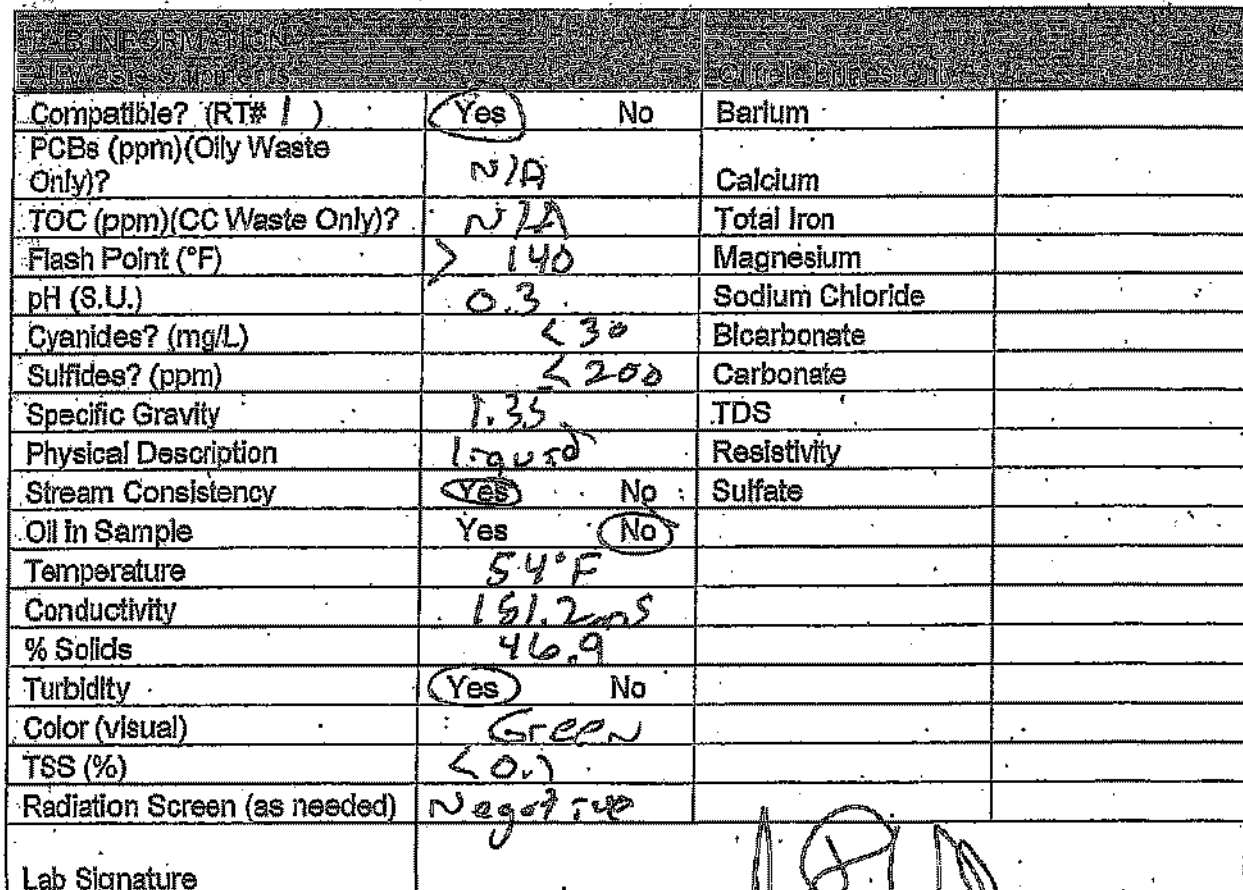 LAB INFORMATION
All Waste Shipments Oilfield Brines Only
Compatible? (RT# 1 ) Yes No Barium
PCBs (ppm)(Oily Waste
Only)? N/A Calcium
TOC (ppm)(CC Waste Only)? N/A Total Iron
Flash Point (°F) > 140 Magnesium
pH (S.U.) 0.3 Sodium Chloride
Cyanides? (mg/L) <30 Bicarbonate
Sulfides? (ppm) <200 Carbonate
Specific Gravity 1.35 TDS
Physical Description liquid Resistivity
Stream Consistency Yes No Sulfate
Oil in Sample Yes No
Temperature 54°F
Conductivity 151.2ms
% Solids 46.9
Turbidity Yes No
Color (visual) Green
TSS (%) <0.1
Radiation Screen (as needed) Negative
Lab Signature